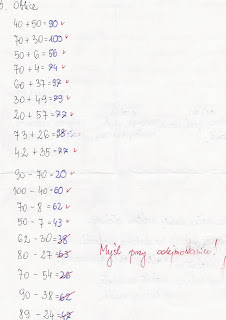 3. Oblicz
40 + 50 = 90
70 + 30 = 100
50 + 6 = 56
70 + 4 = 74
60 + 37 = 97
30 + 49 = 79
20 + 57 = 77
73 + 26 =
42 + 35 = 77
90 - 70 = 20
100 - 40 = 60
70 - 8 = 62
50 - 7 = 43
62 - 30 = 38
80 - 27 = 63
Myśl przy odejmowaniu!
70 - 54 = 26
90 - 38 = 62
89 - 24 =